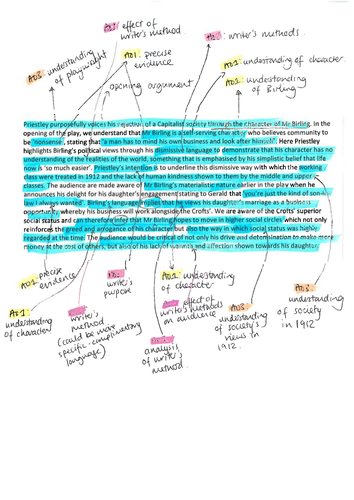 AO2: effect of
writer's method
AO1: precise
evidence
AO2: writer's methods
AO3: understanding
of playwright
AO1: understanding of character
AO1: understanding
of Birling
opening argument
Priestley purposefully voices his rejection of a Capitalist society through the character of Mr Birling. In the
opening of the play, we understand that Mr Birling is a self-serving character who believes community to
be 'nonsense', stating that 'a man has to mind his own business and look after himself'. Here Priestley
highlights Birling's political views through his dismissive language to demonstrate that his character has no
understanding of the realities of the world, something that is emphasised by his simplistic belief that life
now is 'so much easier'. Priestley's intention is to underline this dismissive way with which the working
class were treated in 1912 and the lack of human kindness shown to them by the middle and upper
classes. The audience are made aware of Mr Birling's materialistic nature earlier in the play when he
announces his delight for his daughter's engagement stating to Gerald that 'you're just the kind of son-in-
law I always wanted'. Birling's language implies that he views his daughter's marriage as a business
opportunity whereby his business will work alongside the Crofts'. We are aware of the Crofts' superior
social status and can therefore infer that Mr Birling hopes to move in higher social circles which not only
reinforces the greed and arrogance of his character but also the way in which social status was highly
regarded at the time. The audience would be critical of not only his drive and determination to make more
money at the cost of others, but also of his lack of warmth and affection shown towards his daughter.
AO1 precise
evidence
AO1:
understanding
of character
writer's
method
(could be more
specific - complimentary
language)
writer's
purpose
AO1: understanding
of character
effect of
writer's methods
on audience
AO2:
analysis
of writer's
method.
AO3
understanding
of society's
views in
1912.
AO3
understanding
of society
in 1912